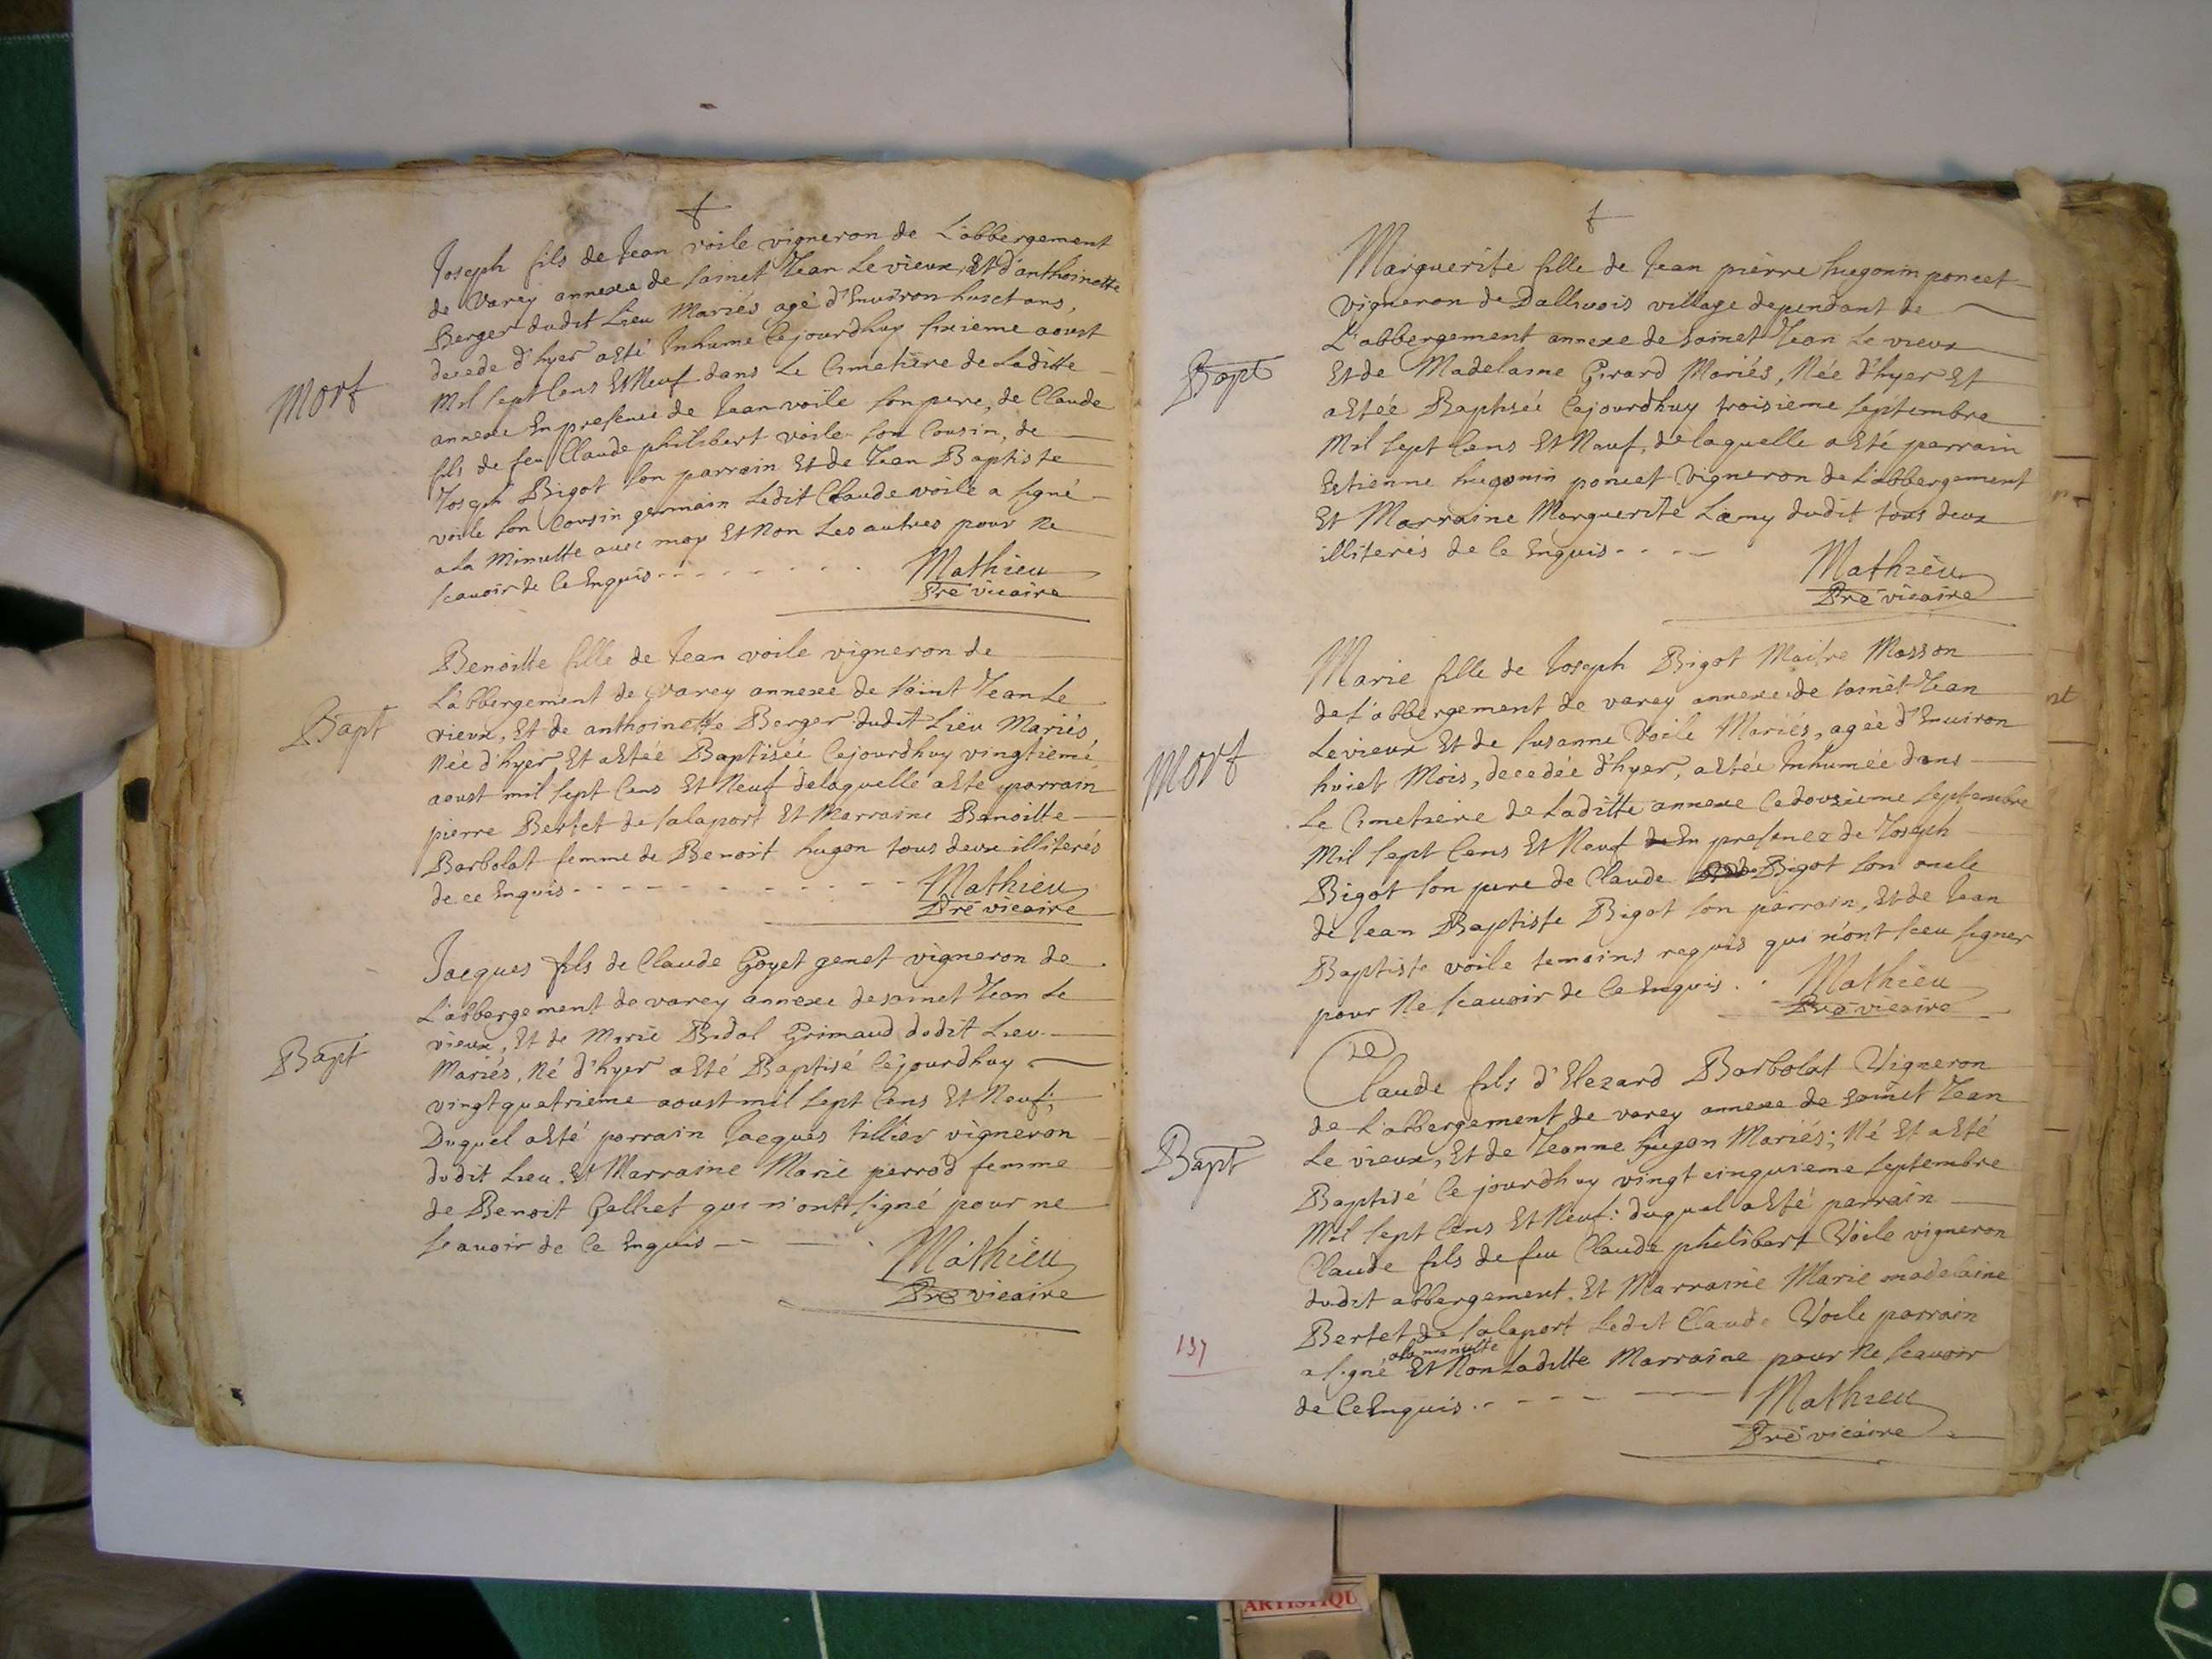 Joseph fils de Jean voile vigneron de L'abbergement
de Varey annexe de sainct Jean Le vieux, Et d'anthoinette
Berger dudit Lieu Mariés agé d'Environ huict ans,
decede d'hyer a Eté Inhumé Cejourdhuy sixieme aoust
Mort
Mil sept Cens Et Neuf dans Le Cimetiere de Laditte
annexe En presence de Jean voile son pere, de Claude
fils de feu Claude philibert voile son Cousin, de
Joseph Bigot son parrain Et de Jean Baptiste
voile son Cousin germain Ledit Claude voile a signé
a La Minutte avec moy Et Non Les autres pour Ne
scavoir de Ce Enquis
Mathieu
Pre vicaire
Benoitte fille de Jean voile vigneron de
L'abbergement de varey annexe de saint Jean Le
Bapt
vieux, Et de anthoinette Berger dudit Lieu Mariés,
Née d'hyer Et a Etée Baptisée Cejourdhuy vingtiemé
aoust mil sept Cens Et Neuf de laquelle a Eté parrain
pierre Bertet de salaport Et Marraine Benoitte
Barbolat femme de Benoit hugon tous deux illiterés
de ce Enquis
Mathieu
Pre vicaire
Jacques fils de Claude Goyet genet vigneron de
L'abbergement de varey annexe de sainct Jean Le
vieux, Et de Marie Bidal Grimaud dudit Lieu
Bapt
Mariés, Né d'hyer a Eté Baptisé Cejourdhuy
vingt quatrieme aoust mil sept Cens Et Neuf,
Duquel a Eté parrain Jacques tillier vigneron
dudit Lieu, Et Marraine Marie perrod femme
de Benoit Galliet qui n'ont signé pour ne
scavoir de Ce Enquis
Mathieu
Pre vicaire
Marguerite fille de Jean pierre hugonin poncet
Vigneron de Dallivois village dependant de
L'abbergement annexe de sainct Jean Le vieux
Bapt
Et de Madelaine Girard Mariés, Née d'hyer Et
a Etée Baptisée Cejourdhuy troisieme septembre
Mil sept Cens Et Neuf, de laquelle a Eté parrain
Estienne hugonin poncet vigneron de L'abbergement
Et Marraine Marguerite Lamy dudit tous deux
illiterés de Ce Enquis
Mathieu
Pre vicaire
Marie fille de Joseph Bigot Maitre Masson
de L'abbergement de varey annexe de sainct Jean
Le vieux Et de susanne Voile Mariés, agée d'Environ
Mort
huict Mois, decedée d'hyer, a Etée Inhumée dans
Le Cimetiere de Laditte annexe Ce dousieme septembre
Mil sept Cens Et Neuf En presence de Joseph
Bigot son pere de Claude Bigot son oncle
de Jean Baptiste Bigot son parrain, Et de Jean
Baptiste voile temoins requis qui n'ont sceu signer
pour Ne scavoir de Ce Enquis
Mathieu
Pre vicaire
Claude fils d'Elezard Barbolat Vigneron
de L'abbergement de varey annexe de sainct Jean
Le vieux, Et de Jeanne hugon Mariés; Né Et a Eté
Bapt
Baptisé Ce jourdhuy vingt cinquieme septembre
Mil sept Cens Et Neuf: duquel a Eté parrain
Claude fils de feu Claude philibert Voile vigneron
dudit abbergement, Et Marraine Marie madelaine
Bertet de salaport Ledit Claude Voile parrain
a la minutte
a signé Et Non Laditte Marraine pour Ne scavoir
137
de Ce Enquis
Mathieu
Pre vicaire
ARTISTIQU